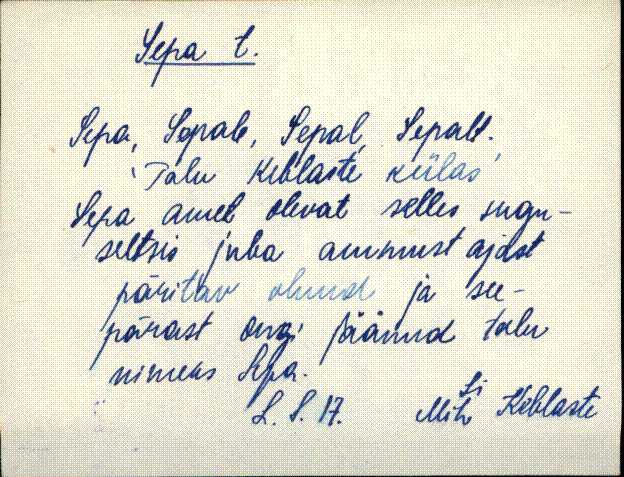 Sepa t.
Sepa, Sepale, Sepal, Sepalt.
'Talu Kiblaste külas'
Sepa amet olevat selles sugu-
seltsis juba ammust ajast
päritav olnud ja see-
pärast ongi jäänud talu
nimeks Sepa.
L. S. 17. Mih Kiblaste